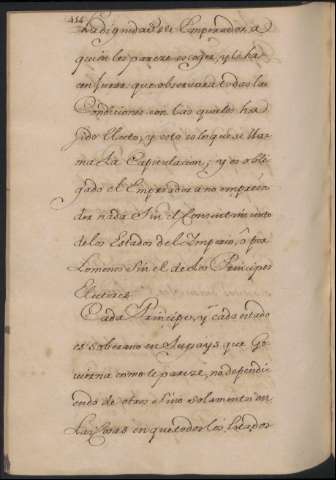 454
la dignidad de Emperador, a
quien les pareze escojer, y le ha
cen Jurar que observara todas las
Condiciones con las quales ha
sido Electo, y esto es lo que se lla
ma La Capitulacion; y es obli
gado el Emperador a no empren
der nada Sin el Consentimiento
de los Estados del Imperio, ò por
Lomenos Sin el de los Principes
Electores
Cada Principe, y cada estado
es soberano en Su pays que Go
vierna como le pareze, no dependi
endo de otros Sino solamente en
Las Cosas en que todos los Estados